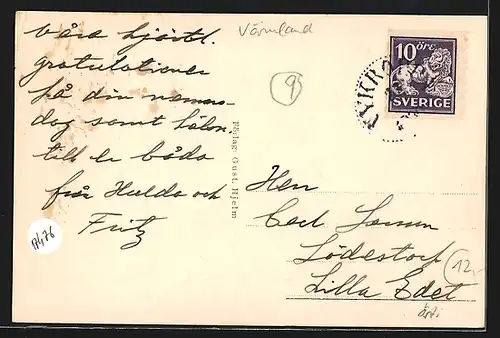 Våra hjärtl.
gratulationer
på din namns-
dag samt hälsn.
till er båda
från Hulda och
Fritz
Värmland
9
Förlag: Gust. Hjelm
10 ÖRE
SVERIGE
Herr
Carl
Lödestorp
Lilla Edet
12,-